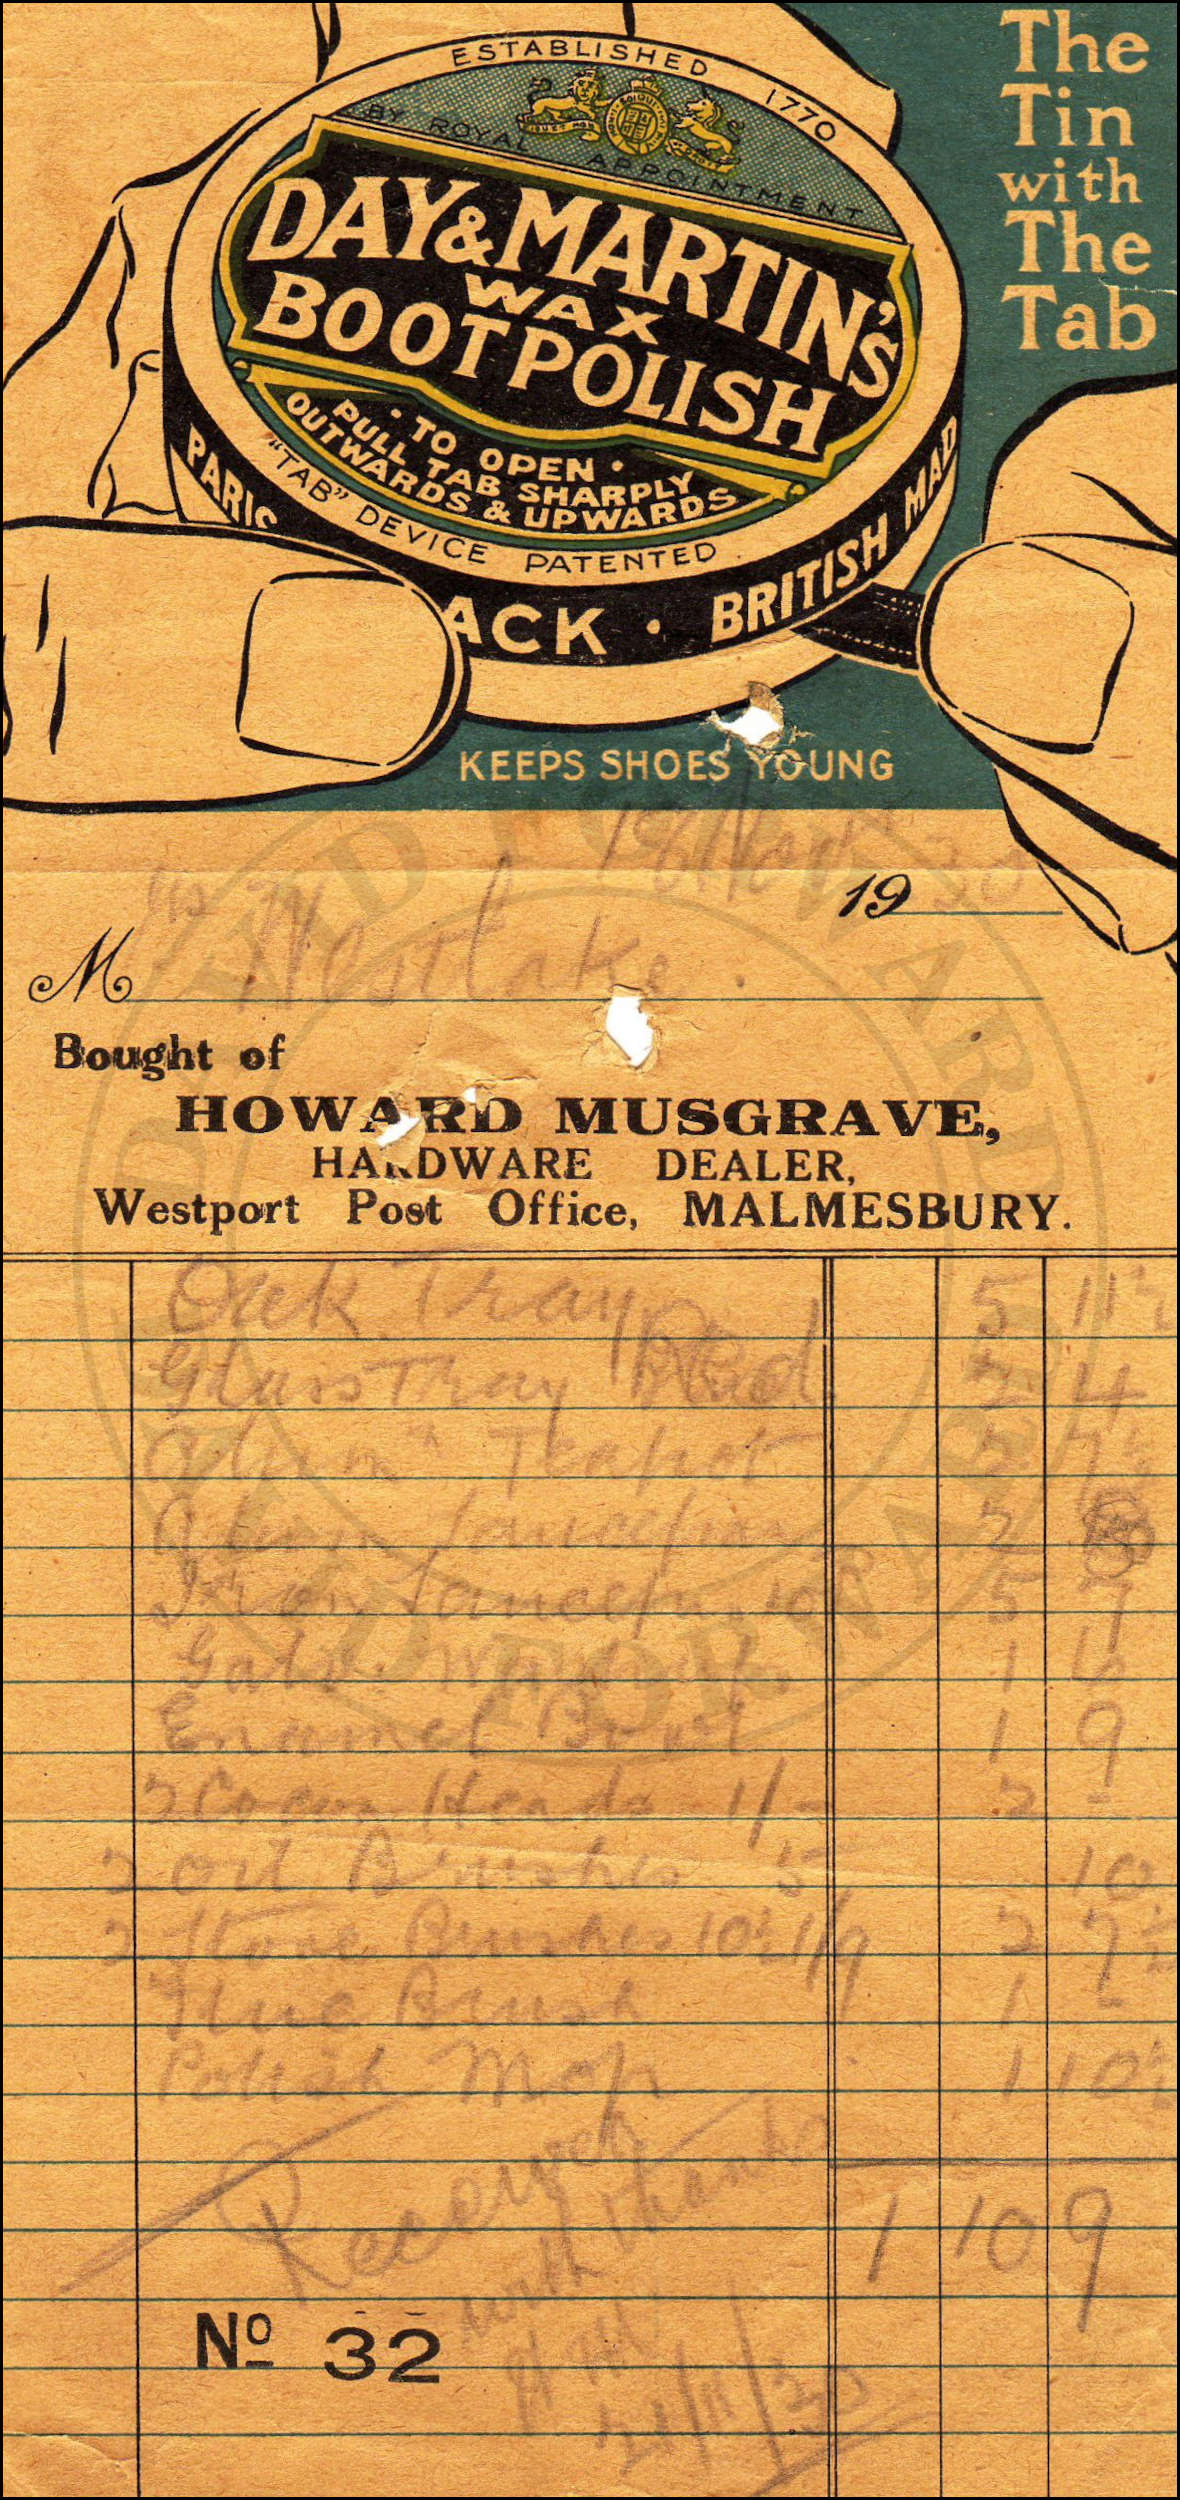 The
Tin
with
The
Tab
ESTABLISHED 1770
BY ROYAL APPOINTMENT
DAY & MARTIN'S
WAX
BOOT POLISH
• TO OPEN •
PULL TAB SHARPLY
OUTWARDS & UPWARDS
"TAB" DEVICE PATENTED
PARIS
ACK · BRITISH MAD
KEEPS SHOES YOUNG
18 Nov 1930
M Westlake
Bought of
HOWARD MUSGRAVE,
HARDWARE DEALER,
Westport Post Office, MALMESBURY.
Oak Tray 5 11½
Glass Tray 2 4
Alumm Teapot 2 7½
Alum Saucepan 2
Iron Saucepan 5 7
1 6
Enamel Bowl 1 9
2 Cocoa Heads 1/- 2 -
2 Oil Brushes 5 10
2 Stove Brushes 10½ 1/9 2 7½
Flue Brush 1 -
Polish Mop 1 10½
1 10 9
Received
with thanks
HM
21/11/30
No 32
DAVID FORWARD
DAVID FORWARD